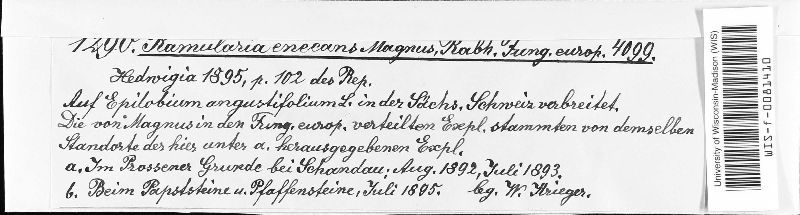 1290. Ramularia enecans Magnus, Rabh. Fung. europ. 4099.
Hedwigia 1895, p. 102 des Rep.
Auf Epilobium angustifolium L. in der Sächs. Schweiz verbreitet.
Die von Magnus in den Fung. europ. verteilten Expl. stammten von demselben
Standorte der hier unter a. herausgegebenen Expl.
a. Im Prossener Grunde bei Schandau; Aug. 1892, Juli 1893.
b. Beim Papststeine u. Pfaffensteine, Juli 1895. lg. W. Krieger.
University of Wisconsin-Madison (WIS)
WIS-f-0081410